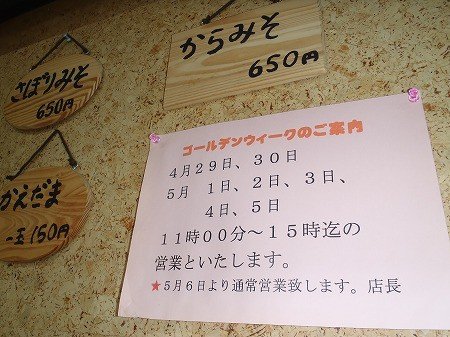 さぽりみそ
650円
からみそ
650円
かえだま
一玉150円
ゴールデンウィークのご案内
4月29日、30日
5月 1日、2日、3日、
4日、5日
11時00分~15時迄の
営業といたします。
★5月6日より通常営業致します。店長